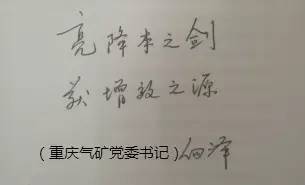 亮降本之剑
获增效之源
（重庆气矿党委书记）佃泽